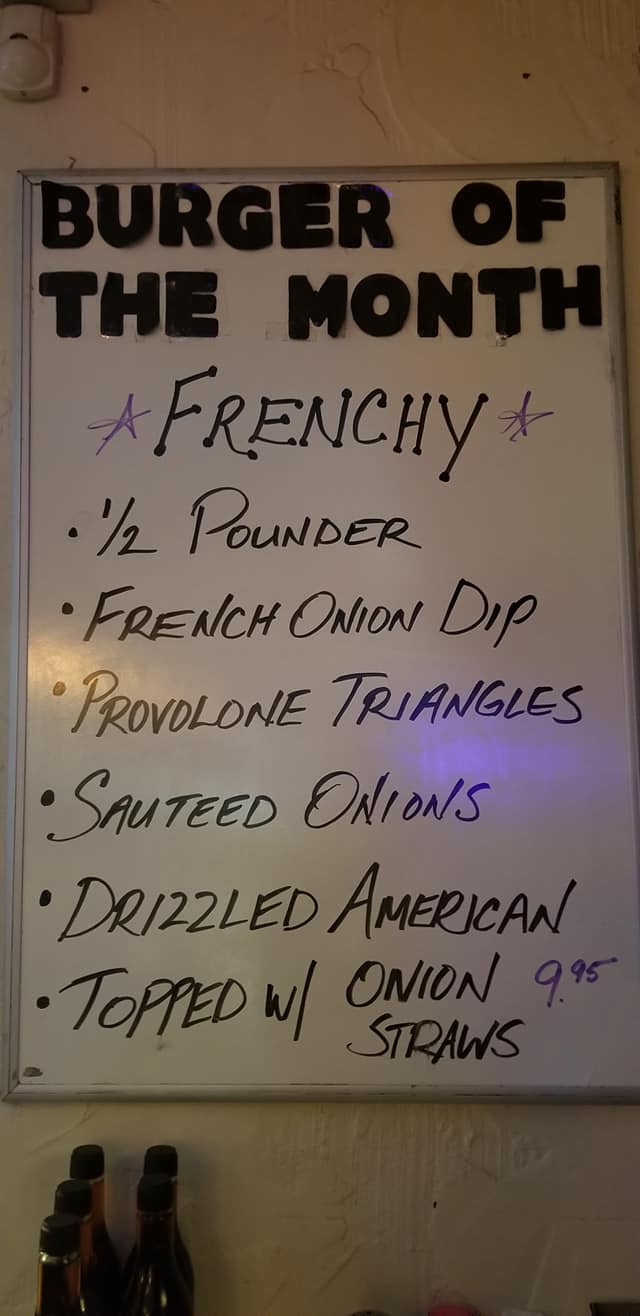 BURGER OF
THE MONTH
FRENCHY
• 1/2 POUNDER
• FRENCH ONION DIP
• PROVOLONE TRIANGLES
• SAUTEED ONIONS
• DRIZZLED AMERICAN
• TOPPED W/ ONION 9.95
STRAWS